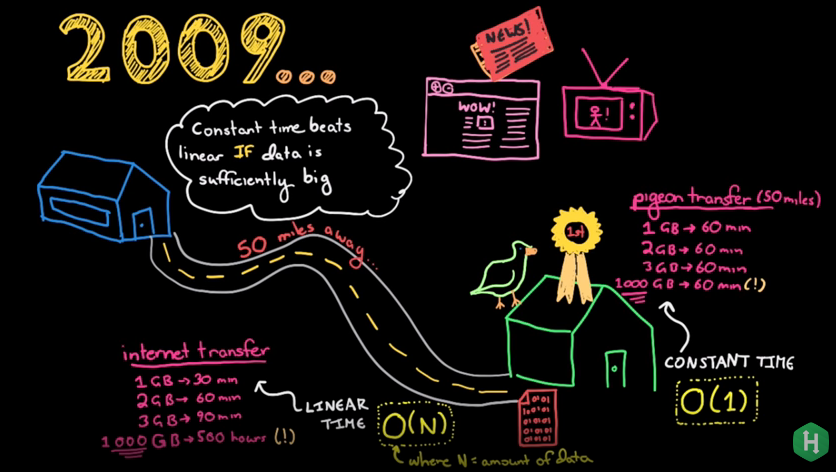 2009...
NEWS!
WOW!
Constant time beats
linear IF data is
sufficiently big
50 miles away...
1st
pigeon transfer (50 miles)
1 GB → 60 min
2 GB → 60 min
3 GB → 60 min
1000 GB → 60 min (!)
CONSTANT TIME
O(1)
internet transfer
1 GB → 30 min
2 GB → 60 min
3 GB → 90 min
1000 GB → 500 hours (!)
LINEAR
TIME
O(N)
where N = amount of data
H